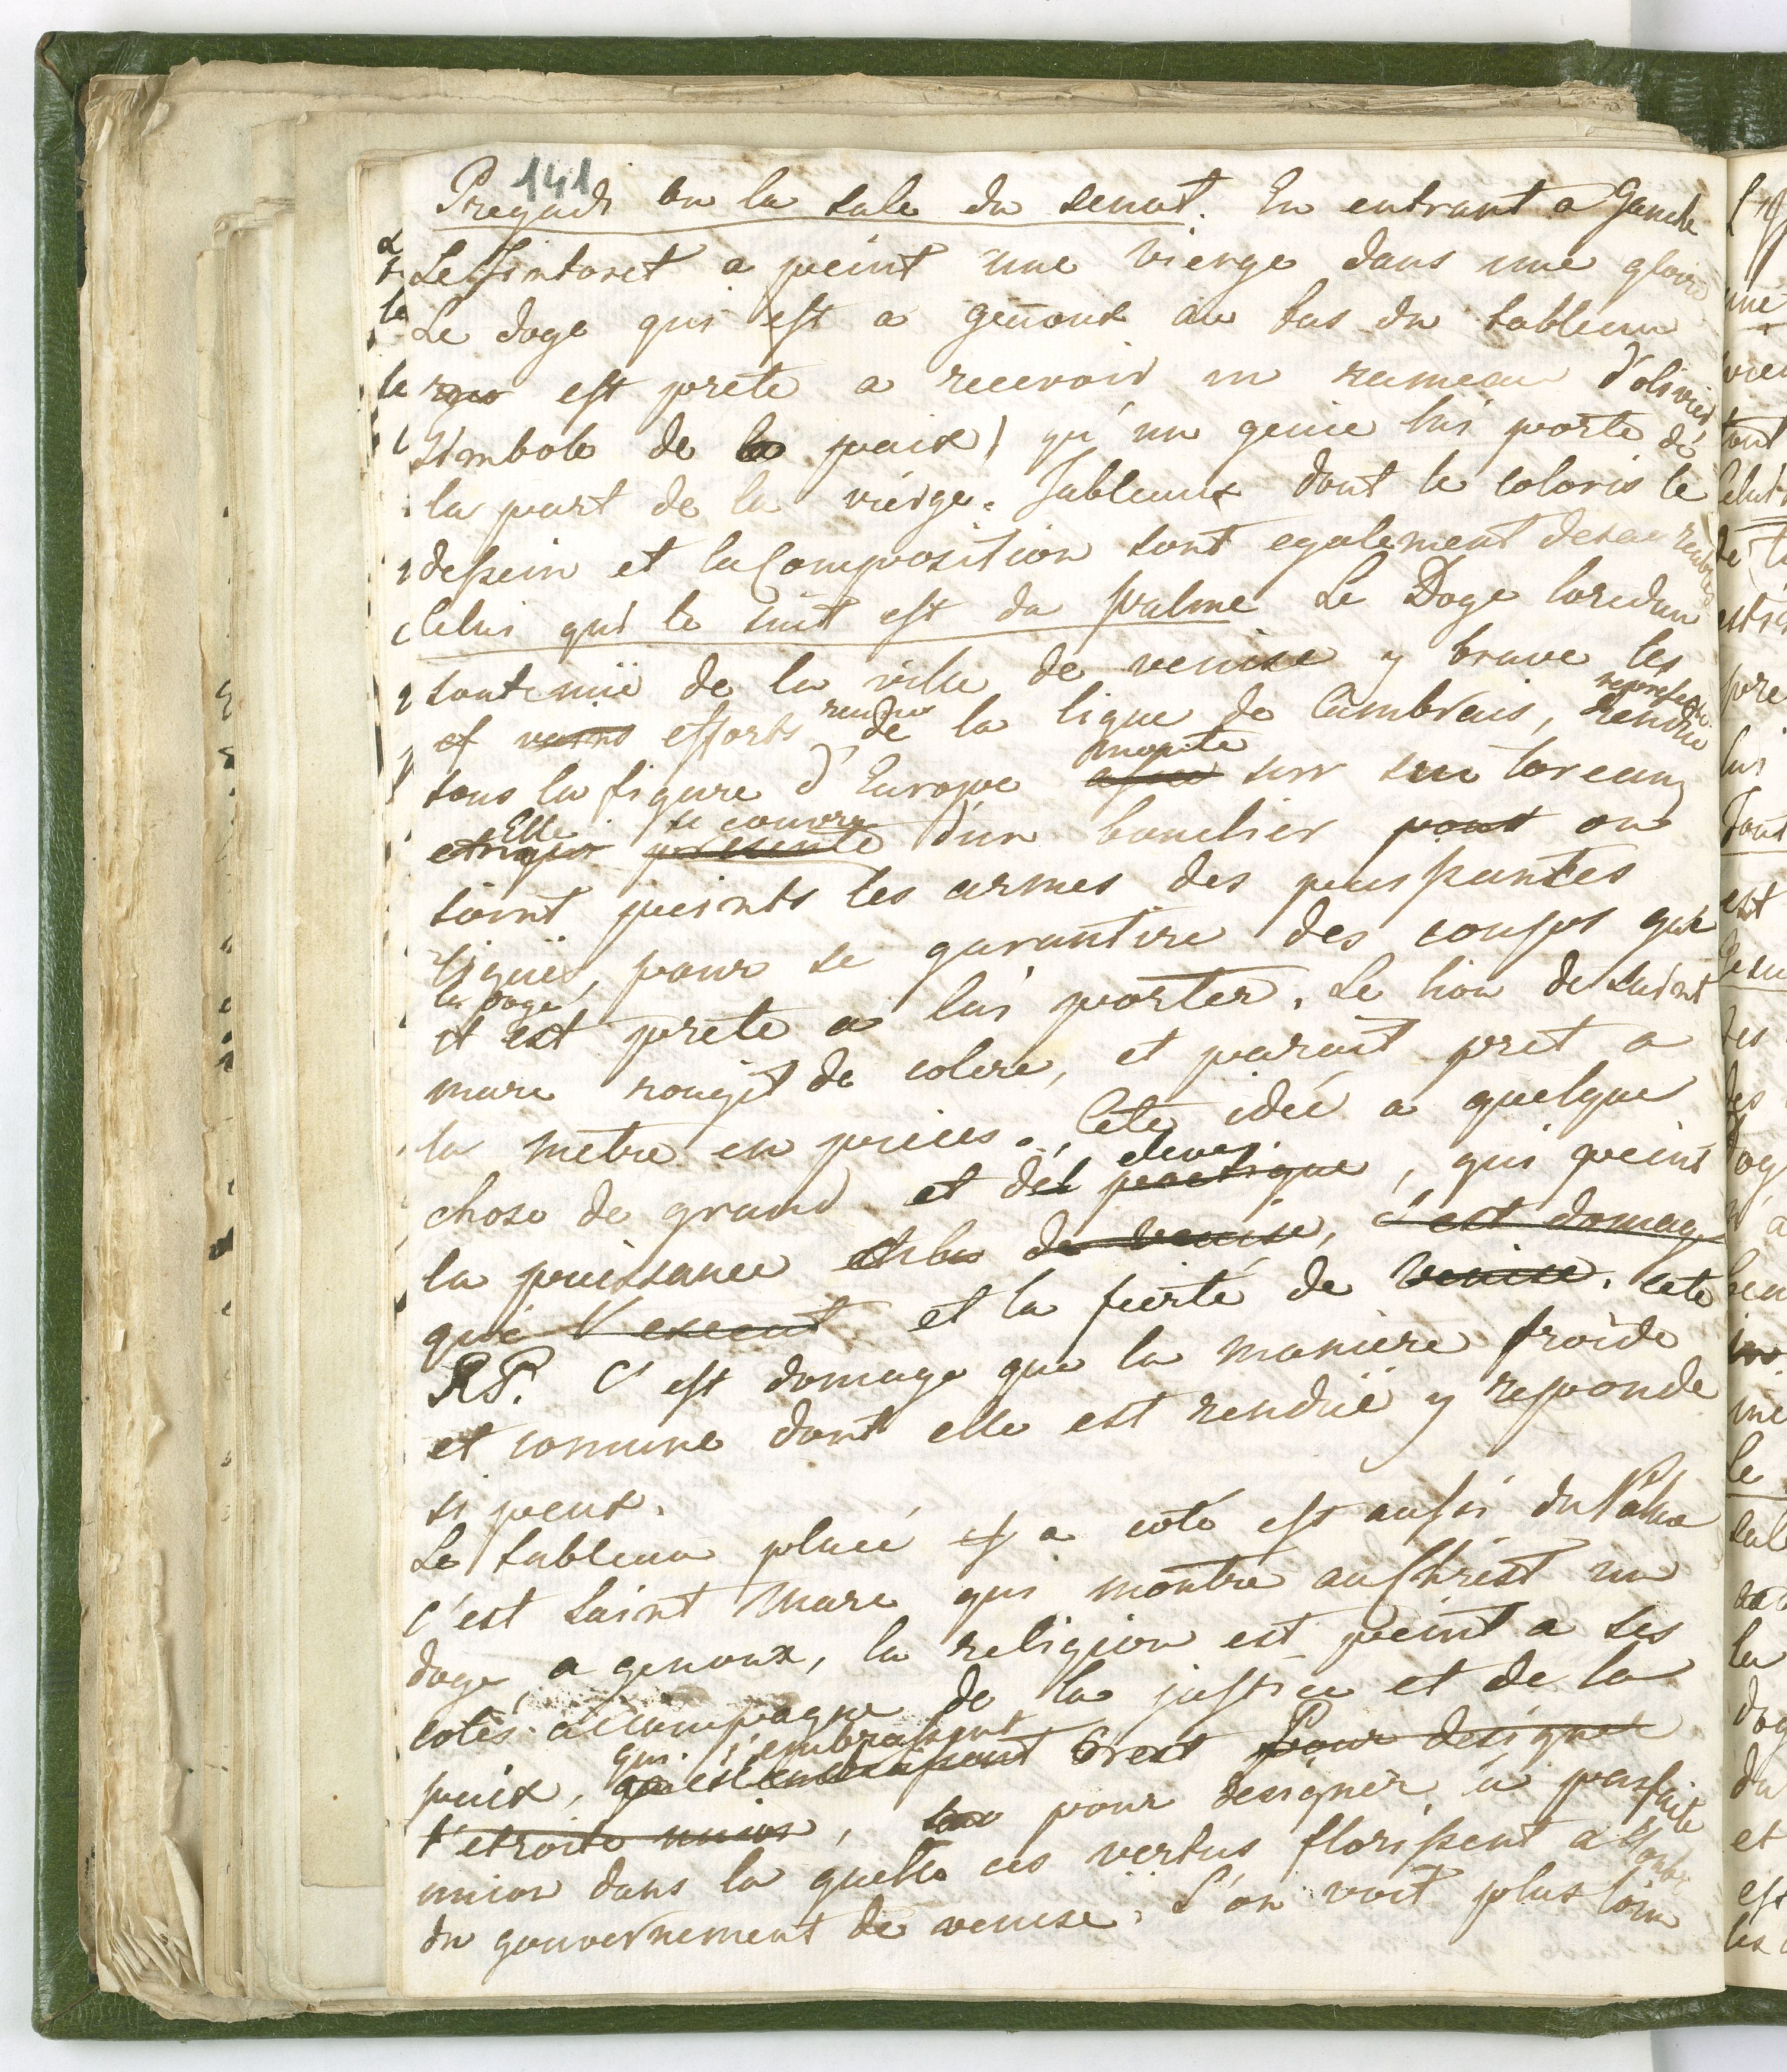 141
Pregadi ou la sale du senat. En entrant a Gauche
Le Tintoret a peint une vierge dans une gloire
Le doge qui est a genoux au bas du tableau
est prete a recevoir un rameau d'olivier
simbole de la paix) qu'un genie lui porte de
la part de la vierge. Tableaux dont le coloris le
dessein et la Composition sont egalement
Celui qui le suit est du palme Le Doge loredan
soutenuë de la ville de venise y brave les
vains efforts reunis de la ligue de Cambrais, represente rendue
sous la figure d'Europe monte sur un toreau
Elle se couvre presente d'un bouclier pont ou
soint peints les armes des puissantes
liguës, pour se garantire des coups que
le doge
et est prete a lui porter. Le lion de saint
marc rougit de colere, et parait pret a
la metre en pieces. Cete idée a quelque
chose de grand et de elevé poetique, qui peint
la puissance de venise, c'est domage
que l'execut et la fierté de venise. cete
RP. C'est domage que la maniere froide
et comune dont elle est renduë y reponde
si peux.
Le tableau placé a coté est aussi du Palma
c'est saint Marc qui montre au Christ un
doge a genoux, la religion est peint a ses
cotés accompagne de la justice et de la
paix, qui s'embrassent c'est pour designer
l'etroite union, pour designer la parfaite
union dans la quelle ces vertus florissent a l'ombre
du gouvernement de venise. L'on voit plus loin